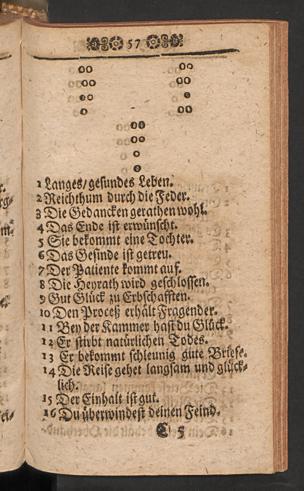 57
1 Langes/gesundes Leben.
2 Reichthum durch die Feder.
3 Die Gedancken gerathen wohl.
4 Das Ende ist erwünscht.
5 Sie bekommt eine Tochter.
6 Das Gesinde ist getreu.
7 Der Patiente kommt auf.
8 Die Heyrath wird geschlossen.
9 Gut Glück zu Erbschafften.
10 Den Proceß erhält Fragender.
11 Bey der Kammer hast du Glück.
12 Er stirbt natürlichen Todes.
13 Er bekommt schleunig gute Briefe.
14 Die Reise gehet langsam und glück-
lich.
15 Der Einhalt ist gut.
16 Du überwindest deinen Feind.
C 5